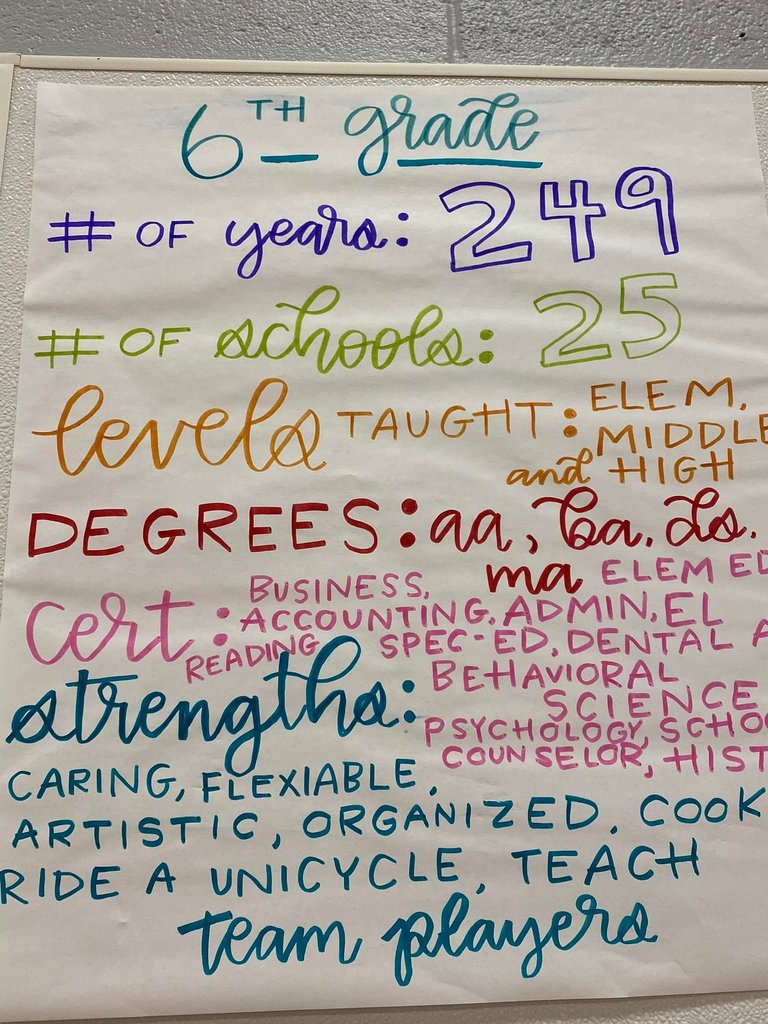 6TH grade
# OF years: 249
# OF schools: 25
levels TAUGHT: ELEM,
MIDDLE
and HIGH
DEGREES: aa, ba, ds.
ma
cert: BUSINESS, ELEM ED
ACCOUNTING, ADMIN, EL
READING SPEC-ED, DENTAL A
BEHAVIORAL
SCIENCE
PSYCHOLOGY, SCHOO
COUNSELOR, HIST
strengths:
CARING, FLEXIABLE,
ARTISTIC, ORGANIZED, COOK
RIDE A UNICYCLE, TEACH
team players